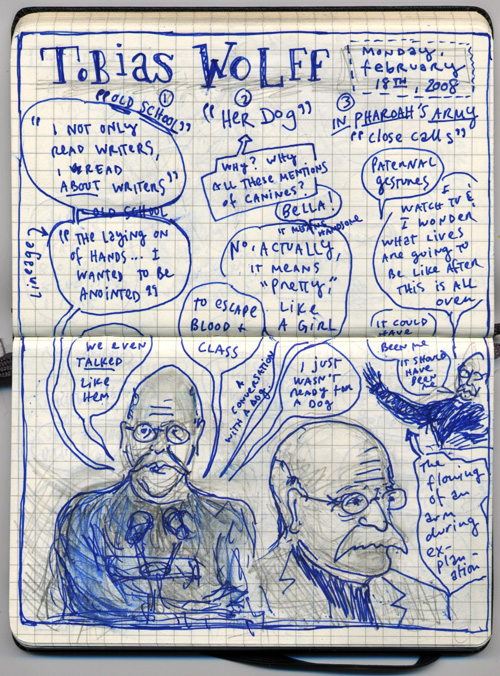 TOBIAS WOLFF
MONDAY,
FEBRUARY
18TH, 2008
①
"OLD SCHOOL"
②
"HER DOG"
③
IN PHAROAH'S ARMY
"Close calls"
"I NOT ONLY
READ WRITERS,
I READ
ABOUT WRITERS"
OLD SCHOOL
Lineage?
"THE LAYING ON
OF HANDS... I
WANTED TO BE
ANOINTED"
WHY? WHY
ALL THESE MENTIONS
OF CANINES?
BELLA!
IT MEANS HANDSOME
NO, ACTUALLY,
IT MEANS
"PRETTY,"
LIKE
A GIRL
PATERNAL
GESTURES
I
WATCH TV &
I WONDER
WHAT LIVES
ARE GOING TO
BE LIKE AFTER
THIS IS ALL
OVER
WE EVEN
TALKED
LIKE
HEM
TO ESCAPE
BLOOD +
CLASS
A
CONVERSATION
WITH A DOG...
I JUST
WASN'T
READY FOR
A DOG
IT COULD
HAVE
BEEN ME
IT SHOULD
HAVE
BEEN
The
flowing
of an
arm
during
ex-
plan-
ation